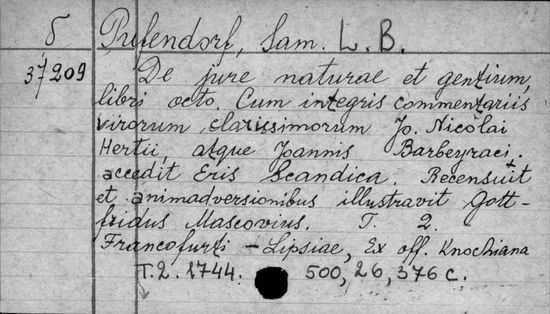 б Pufendorf, Sam. L. B.
37209 De jure naturae et gentium,
libri octo. Cum integris commentariis
virorum clarissimorum Jo. Nicolai
Hertii, atque Joannis Barbeyraci.
accedit Eris Scandica. Recensuit
et animadversionibus illustravit Gott-
fridus Mascovius. T. 2.
Francofurti - Lipsiae, Ex off. Knochiana
T. 2. 1744. 500, 26, 376 c.